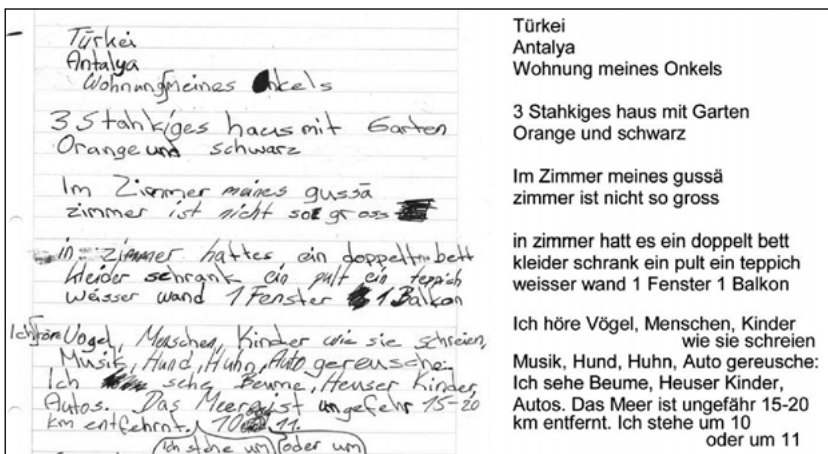 Türkei
Antalya
Wohnung meines Onkels
3 Stahkiges haus mit Garten
Orange und schwarz
Im Zimmer meines gussä
zimmer ist nicht so gross
in zimmer hattes ein doppelt bett
kleider schrank ein pult ein teppich
weisser wand 1 Fenster 1 Balkon
Ich höre Vogel, Menschen, Kinder wie sie schreien,
Musik, Hund, Huhn, Auto gereusche.
Ich sehe Beume, Heuser Kinder,
Autos. Das Meer ist ungefehr 15-20
km entfehrnt. 10 11.
Ich stehe um oder um
Türkei
Antalya
Wohnung meines Onkels
3 Stahkiges haus mit Garten
Orange und schwarz
Im Zimmer meines gussä
zimmer ist nicht so gross
in zimmer hatt es ein doppelt bett
kleider schrank ein pult ein teppich
weisser wand 1 Fenster 1 Balkon
Ich höre Vögel, Menschen, Kinder
wie sie schreien
Musik, Hund, Huhn, Auto gereusche:
Ich sehe Beume, Heuser Kinder,
Autos. Das Meer ist ungefähr 15-20
km entfernt. Ich stehe um 10
oder um 11